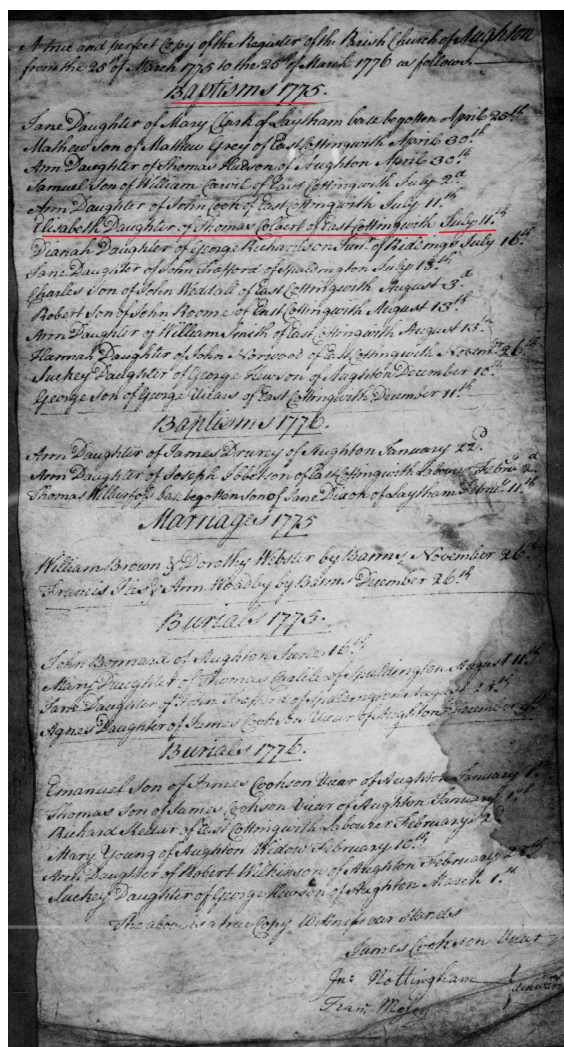 A true and perfect Copy of the Register of the Parish Church of Aughton
from the 25th of March 1775 to the 25th of March 1776 as follows.
Baptisms 1775.
Jane Daughter of Mary Clark of Laytham base begotten April 25th
Mathew Son of Mathew Grey of East Cottingwith April 30th
Ann Daughter of Thomas Hudson of Aughton April 30th
Samuel Son of William Carvil of East Cottingwith July 2d
Ann Daughter of John Cook of East Cottingwith July 11th
Elisabeth Daughter of Thomas Colbert of East Cottingwith July 11th
Dianah Daughter of George Richardson Junr of Ridings July 16th
Jane Daughter of John of Spaldington July 18th
Charles Son of John Weddall of East Cottingwith August 3d
Robert Son of John Roome of East Cottingwith August 13th
Ann Daughter of William Smith of East Cottingwith August 13th
Hannah Daughter of John Norwood of East Cottingwith Novembr 26th
Suckey Daughter of George Hewson of Aughton December 10th
George Son of George Vicars of East Cottingwith December 11th
Baptisms 1776.
Ann Daughter of James Drurey of Aughton January 22d
Ann Daughter of Joseph Ibbetson of East Cottingwith Labourer Febru 2d
Thomas Wilberfoss base begotten Son of Jane Dixon of Laytham Febru 11th
Marriages 1775
William Brown & Dorothy Webster by Banns November 26th
Francis & Ann by Banns December 26th
Burials 1775.
John Bonnard of Aughton June 16th
Mary Daughter of Thomas of Spaldington August 11th
Jane Daughter of John of Spaldington August 23th
Agnes Daughter of James Cookson Vicar of Aughton December 9th
Burials 1776.
Emanuel Son of James Cookson Vicar of Aughton January 1st
Thomas Son of James Cookson Vicar of Aughton January 1st
Richard of East Cottingwith Labourer February 2d
Mary Young of Aughton Widow February 10th
Ann Daughter of Robert Wilkinson of Aughton February
Suckey Daughter of George Hewson of Aughton March 1st
The above is a true Copy Witness our Hands
James Cookson Vicar
Jno Nottingham
Fran.